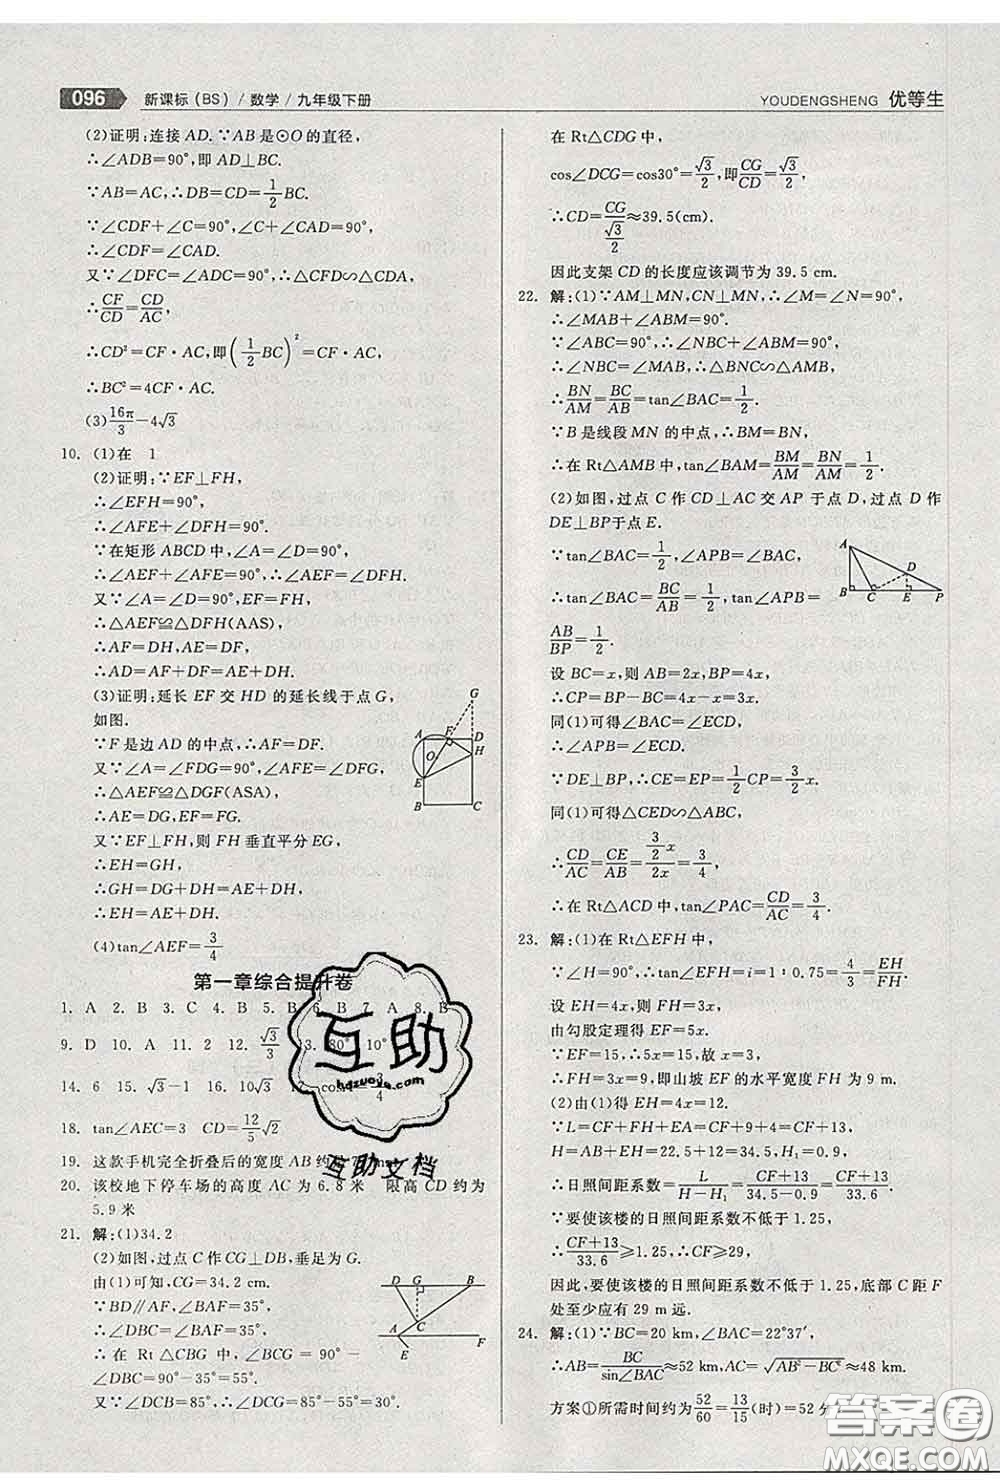 096 新课标(BS)/数学/九年级下册
YOUDENGSHENG 优等生
(2)证明:连接 AD.∵AB是⊙O的直径,
∴∠ADB=90°,即 AD⊥BC.
∵AB=AC,∴DB=CD=1/2BC.
∵∠CDF+∠C=90°,∠C+∠CAD=90°,
∴∠CDF=∠CAD.
又∵∠DFC=∠ADC=90°,∴△CFD∽△CDA,
∴CF/CD=CD/AC,
∴CD²=CF·AC,即(1/2BC)²=CF·AC,
∴BC²=4CF·AC.
(3)16π/3-4√3
10. (1)在 1
(2)证明:∵EF⊥FH,
∴∠EFH=90°,
∴∠AFE+∠DFH=90°.
∵在矩形 ABCD 中,∠A=∠D=90°,
∴∠AEF+∠AFE=90°,∴∠AEF=∠DFH.
又∵∠A=∠D=90°,EF=FH,
∴△AEF≌△DFH(AAS),
∴AF=DH,AE=DF,
∴AD=AF+DF=AE+DH.
(3)证明:延长 EF 交 HD 的延长线于点 G,
如图.
∵F是边 AD 的中点,∴AF=DF.
又∵∠A=∠FDG=90°,∠AFE=∠DFG,
∴△AEF≌△DGF(ASA),
∴AE=DG,EF=FG.
又∵EF⊥FH,则 FH 垂直平分 EG,
∴EH=GH.
∵GH=DG+DH=AE+DH,
∴EH=AE+DH.
(4)tan∠AEF=3/4
G
A F D
O H
E
B C
第一章综合提升卷
1. A 2. B 3. C 4. B 5. B 6. B 7. A 8. B
9. D 10. A 11. 2 12. √3/3
14. 6 15. √3-1 16. 10√3
18. tan∠AEC=3 CD=12/5√2
19. 这款手机完全折叠后的宽度 AB 约
20. 该校地下停车场的高度 AC 为 6.8 米 限高 CD 约为
5.9 米
21. 解:(1)34.2
(2)如图,过点 C 作 CG⊥DB,垂足为 G.
由(1)可知,CG=34.2 cm.
∵BD∥AF,∠BAF=35°,
∴∠DBC=∠BAF=35°,
∴在 Rt△CBG 中,∠BCG=90°-
∠DBC=90°-35°=55°.
又∵∠DCB=85°,∴∠DCG=85°-55°=30°.
D G B
C
A F
E
在 Rt△CDG 中,
cos∠DCG=cos30°=√3/2,即CG/CD=√3/2,
∴CD=CG/(√3/2)≈39.5(cm).
因此支架 CD 的长度应该调节为 39.5 cm.
22. 解:(1)∵AM⊥MN,CN⊥MN,∴∠M=∠N=90°,
∴∠MAB+∠ABM=90°.
∵∠ABC=90°,∴∠NBC+∠ABM=90°,
∴∠NBC=∠MAB,∴△NBC∽△AMB,
∴BN/AM=BC/AB=tan∠BAC=1/2.
∵B是线段 MN 的中点,∴BM=BN,
∴在 Rt△AMB 中,tan∠BAM=BM/AM=BN/AM=1/2.
(2)如图,过点 C 作 CD⊥AC 交 AP 于点 D,过点 D 作
DE⊥BP于点 E.
∵tan∠BAC=1/2,∠APB=∠BAC,
∴tan∠BAC=BC/AB=1/2,tan∠APB=
AB/BP=1/2.
A
D
B C E P
设 BC=x,则 AB=2x,BP=4x,
∴CP=BP-BC=4x-x=3x.
同(1)可得∠BAC=∠ECD,
∴∠APB=∠ECD.
∵DE⊥BP,∴CE=EP=1/2CP=3/2x.
同(1)可得△CED∽△ABC,
∴CD/AC=CE/AB=(3/2x)/2x=3/4,
∴在 Rt△ACD 中,tan∠PAC=CD/AC=3/4.
23. 解:(1)在 Rt△EFH 中,
∵∠H=90°,∴tan∠EFH=i=1:0.75=4/3=EH/FH.
设 EH=4x,则 FH=3x,
由勾股定理得 EF=5x.
∵EF=15,∴5x=15,故 x=3,
∴FH=9,即山坡 EF 的水平宽度为 9 m.
(2)由(1)得 EH=4x=12.
∵L=CF+FH+EA=CF+9+4=CF+13,
H=AB+EH=22.5+12=34.5,H₁=0.9,
∴日照间距系数=L/(H-H₁)=(CF+13)/(34.5-0.9)=(CF+13)/33.6.
∵要使该楼的日照间距系数不低于 1.25,
∴(CF+13)/33.6≥1.25,∴CF≥29.
因此,要使该楼的日照间距系数不低于 1.25,底部 C 距 F
处至少应有 29 m 远.
24. 解:(1)∵BC=20 km,∠BAC=22°37′,
∴AB=BC/sin∠BAC≈52 km,AC=√(AB²-BC²)≈48 km.
方案①所需时间约为52/60=13/15(时)=52 分
互助
hdzuoye.com
互助文档
答案圈
MXQE.COM